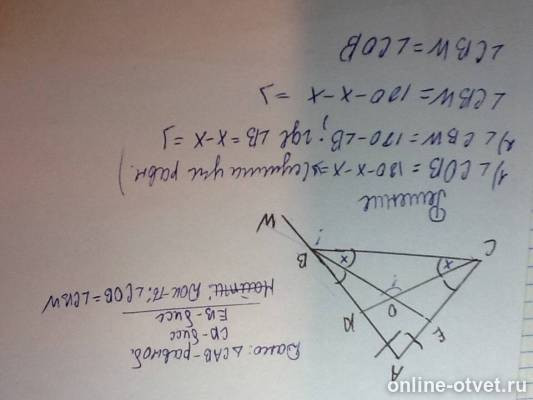 Дано: △CAB-равноб.
CK-бисс
EB-бисс
Найти: Док-ть: ∠COB=∠CBW
A
E
K
O
C
x
x
B
W
Решение
1) ∠COB = 180-x-x => (сумма угл равн.)
2) ∠CBW = 180-∠B; где ∠B = x-x =>
∠CBW = 180-x-x =>
∠CBW = ∠COB
online-otvet.ru